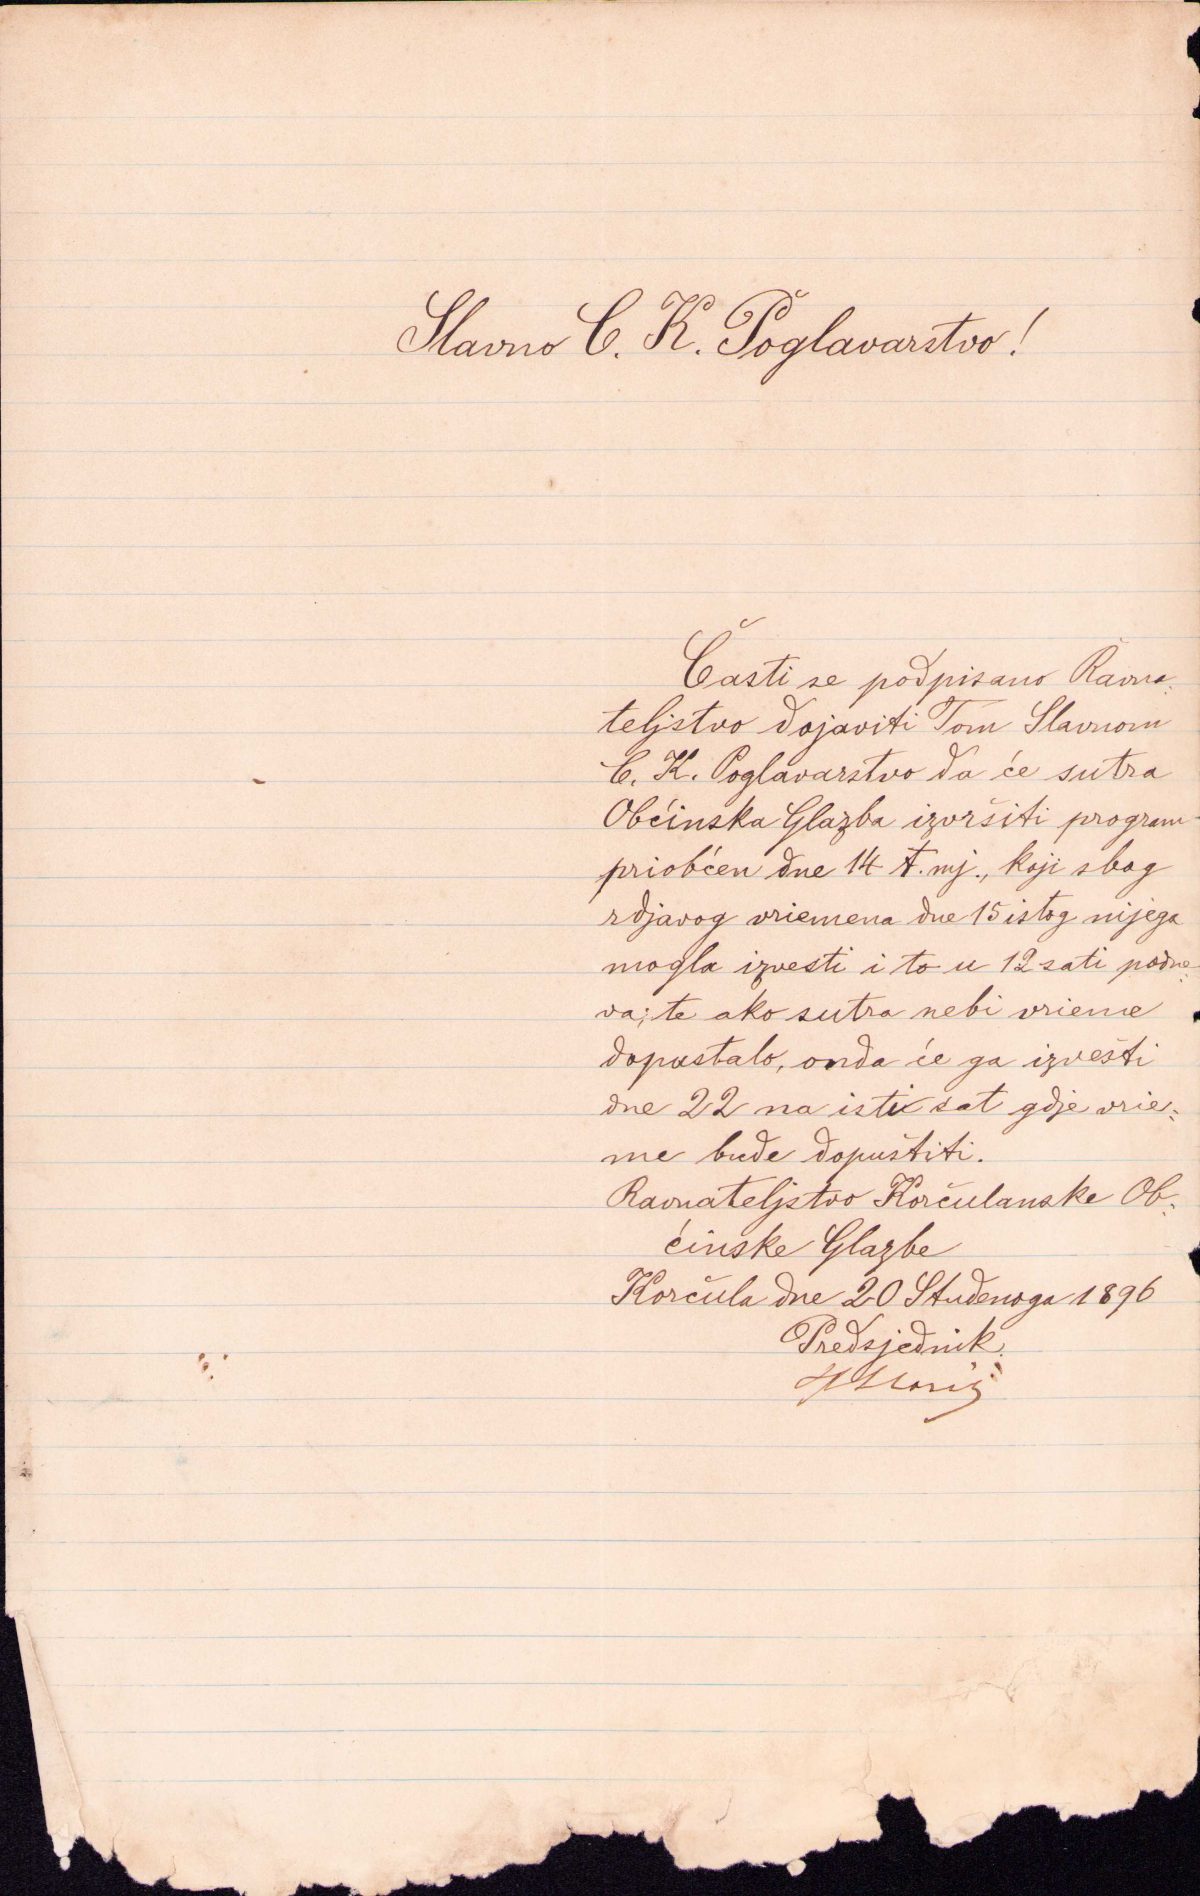 Slavno C. K. Poglavarstvo!
Časti se podpisano Ravna-
teljstvo dojaviti Tom Slavnom
C. K. Poglavarstvo da će sutra
Obćinska Glazba izvršiti program
priobćen dne 14 t. mj., koji sbog
rdjavog vriemena dne 15 istog nijega
mogla izvesti i to u 12 sati podne-
va; te ako sutra nebi vrieme
dopustalo, onda će ga izvesti
dne 22 na isti sat gdje vrie-
me bude dopuštiti.
Ravnateljstvo Korčulanske Ob-
ćinske Glazbe
Korčula dne 20 Studenoga 1896
Predsjednik